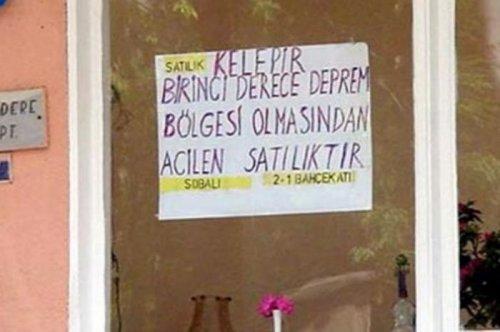 SATILIK KELEPİR
BİRİNCİ DERECE DEPREM
BÖLGESİ OLMASINDAN
ACİLEN SATILIKTIR
SOBALI 2-1 BAHÇEKATI
DERE
PT.